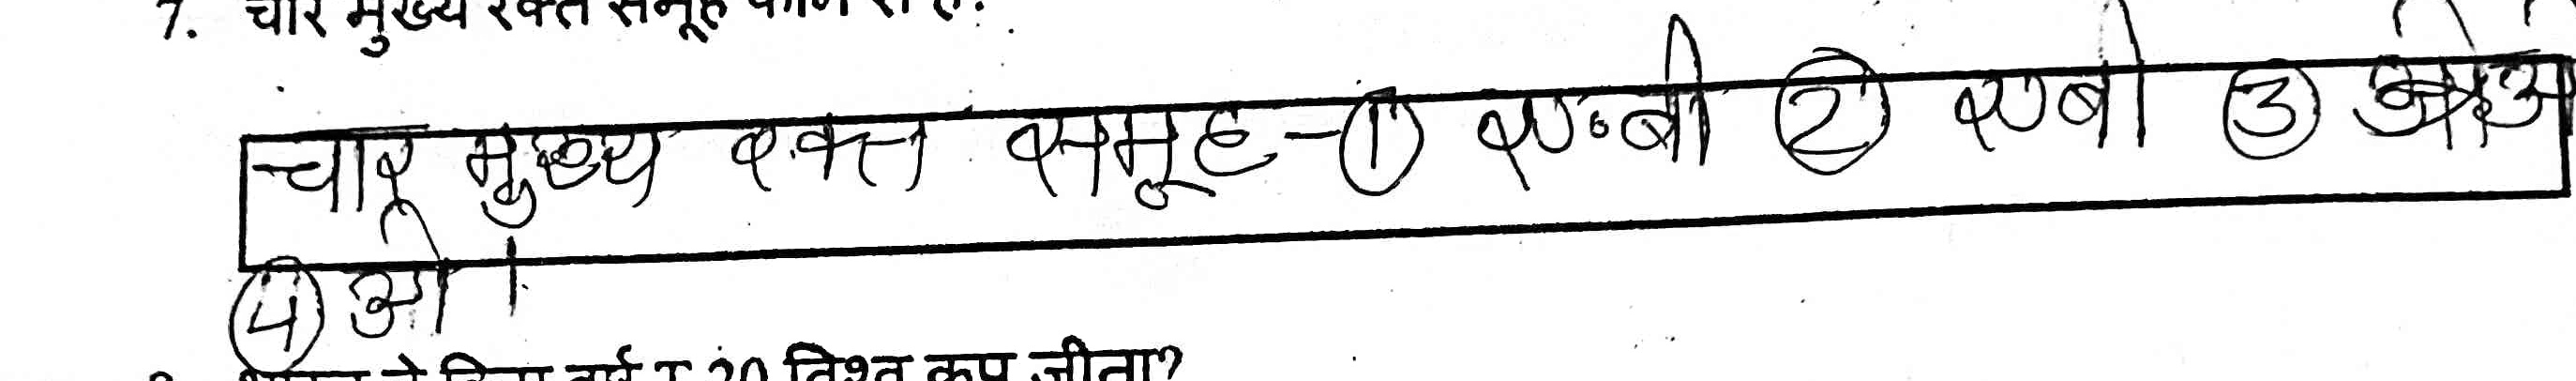 7. चार मुख्य रक्त समूह कौन से है?
चार मुख्य रक्त समूह - ① ए॰बी ② एबी ③
④ ओ ।
भारत ने किस वर्ष T 20 विश्व कप जीता?